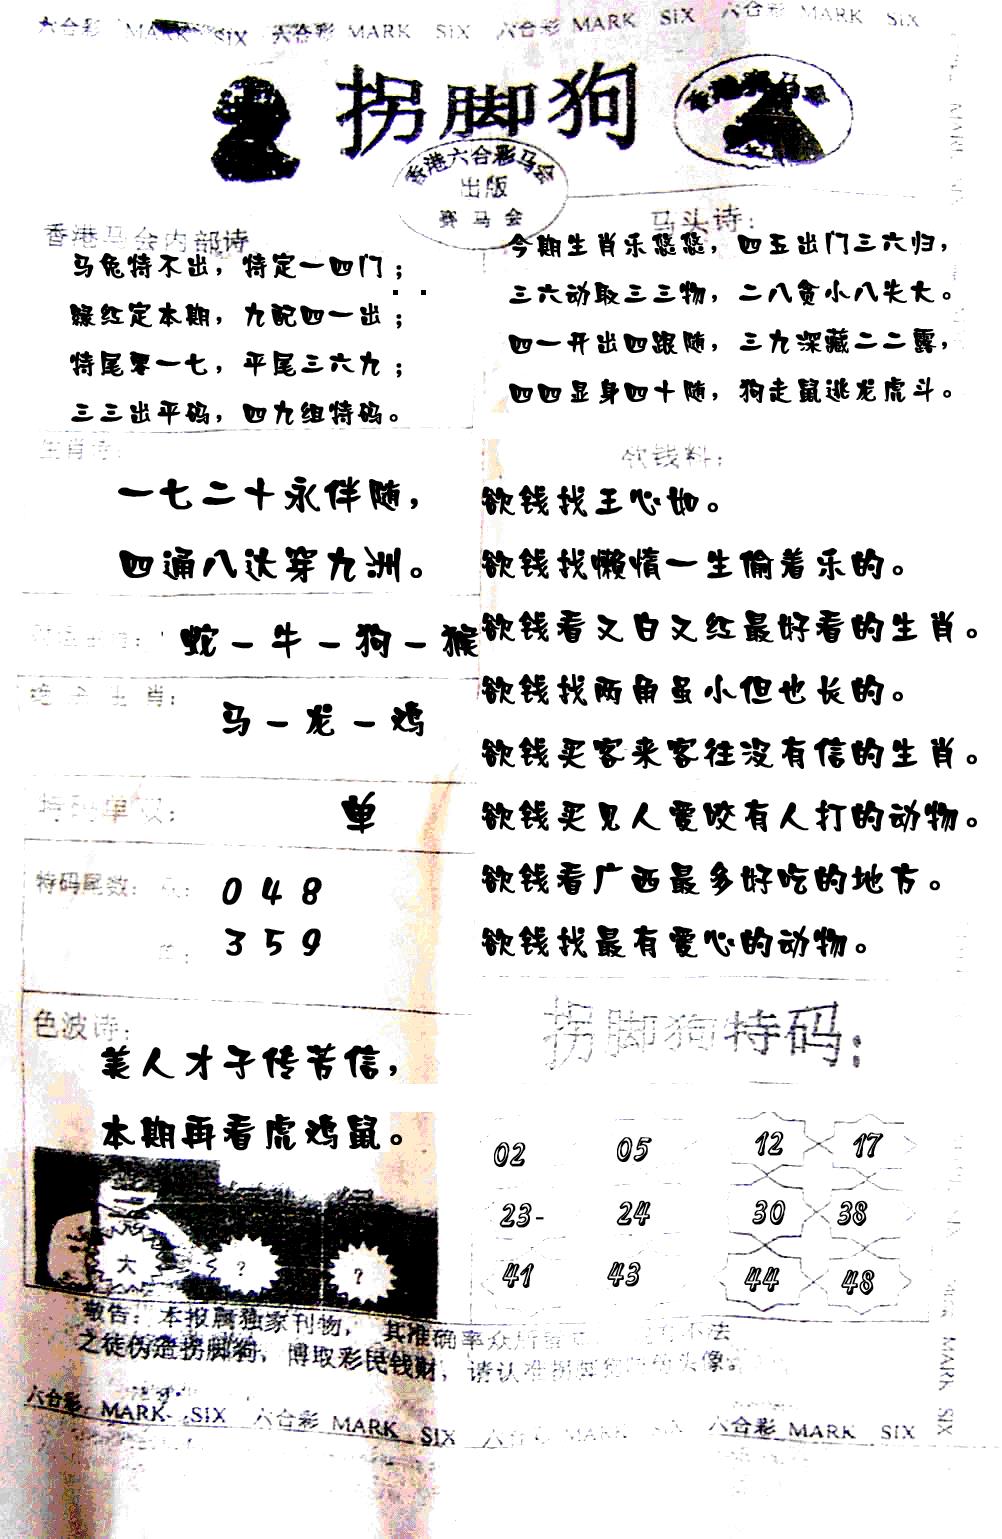 六合彩 MARK SIX 六合彩 MARK SIX 六合彩 MARK SIX 六合彩 MARK SIX
拐脚狗
香港六合彩马会
出版
赛马会
香港马会内部诗
马兔特不出，特定一四门；
绿红定本期，九配四一出；
特尾零一七，平尾三六九；
三三出平码，四九组特码。
马头诗：
今期生肖乐悠悠，四五出门三六归，
三六动取三三物，二八贪小八失大。
四一开出四跟随，三九深藏二二露，
四四显身四十随，狗走鼠逃龙虎斗。
生肖诗：
一七二十永伴随，
四通八达穿九洲。
蛇－牛－狗－猴
绝杀生肖：
马－龙－鸡
特码单双：
单
特码尾数：
0 4 8
3 5 9
色波诗：
美人才子传芳信，
本期再看虎鸡鼠。
大 ？ ？
欲钱料：
欲钱找王心如。
欲钱找懒惰一生偷着乐的。
欲钱看又白又红最好看的生肖。
欲钱找两角虽小但也长的。
欲钱买客来客往没有信的生肖。
欲钱买见人爱咬有人打的动物。
欲钱看广西最多好吃的地方。
欲钱找最有爱心的动物。
拐脚狗特码：
02 05 12 17
23- 24 30 38
41 43 44 48
敬告：本报属独家刊物，其准确率众所
不法
之徒伪造拐脚狗，博取彩民钱财，请认准拐脚狗
头像。
六合彩 MARK SIX 六合彩 MARK SIX 六合彩 MARK SIX 六合彩 MARK SIX
MARK SIX